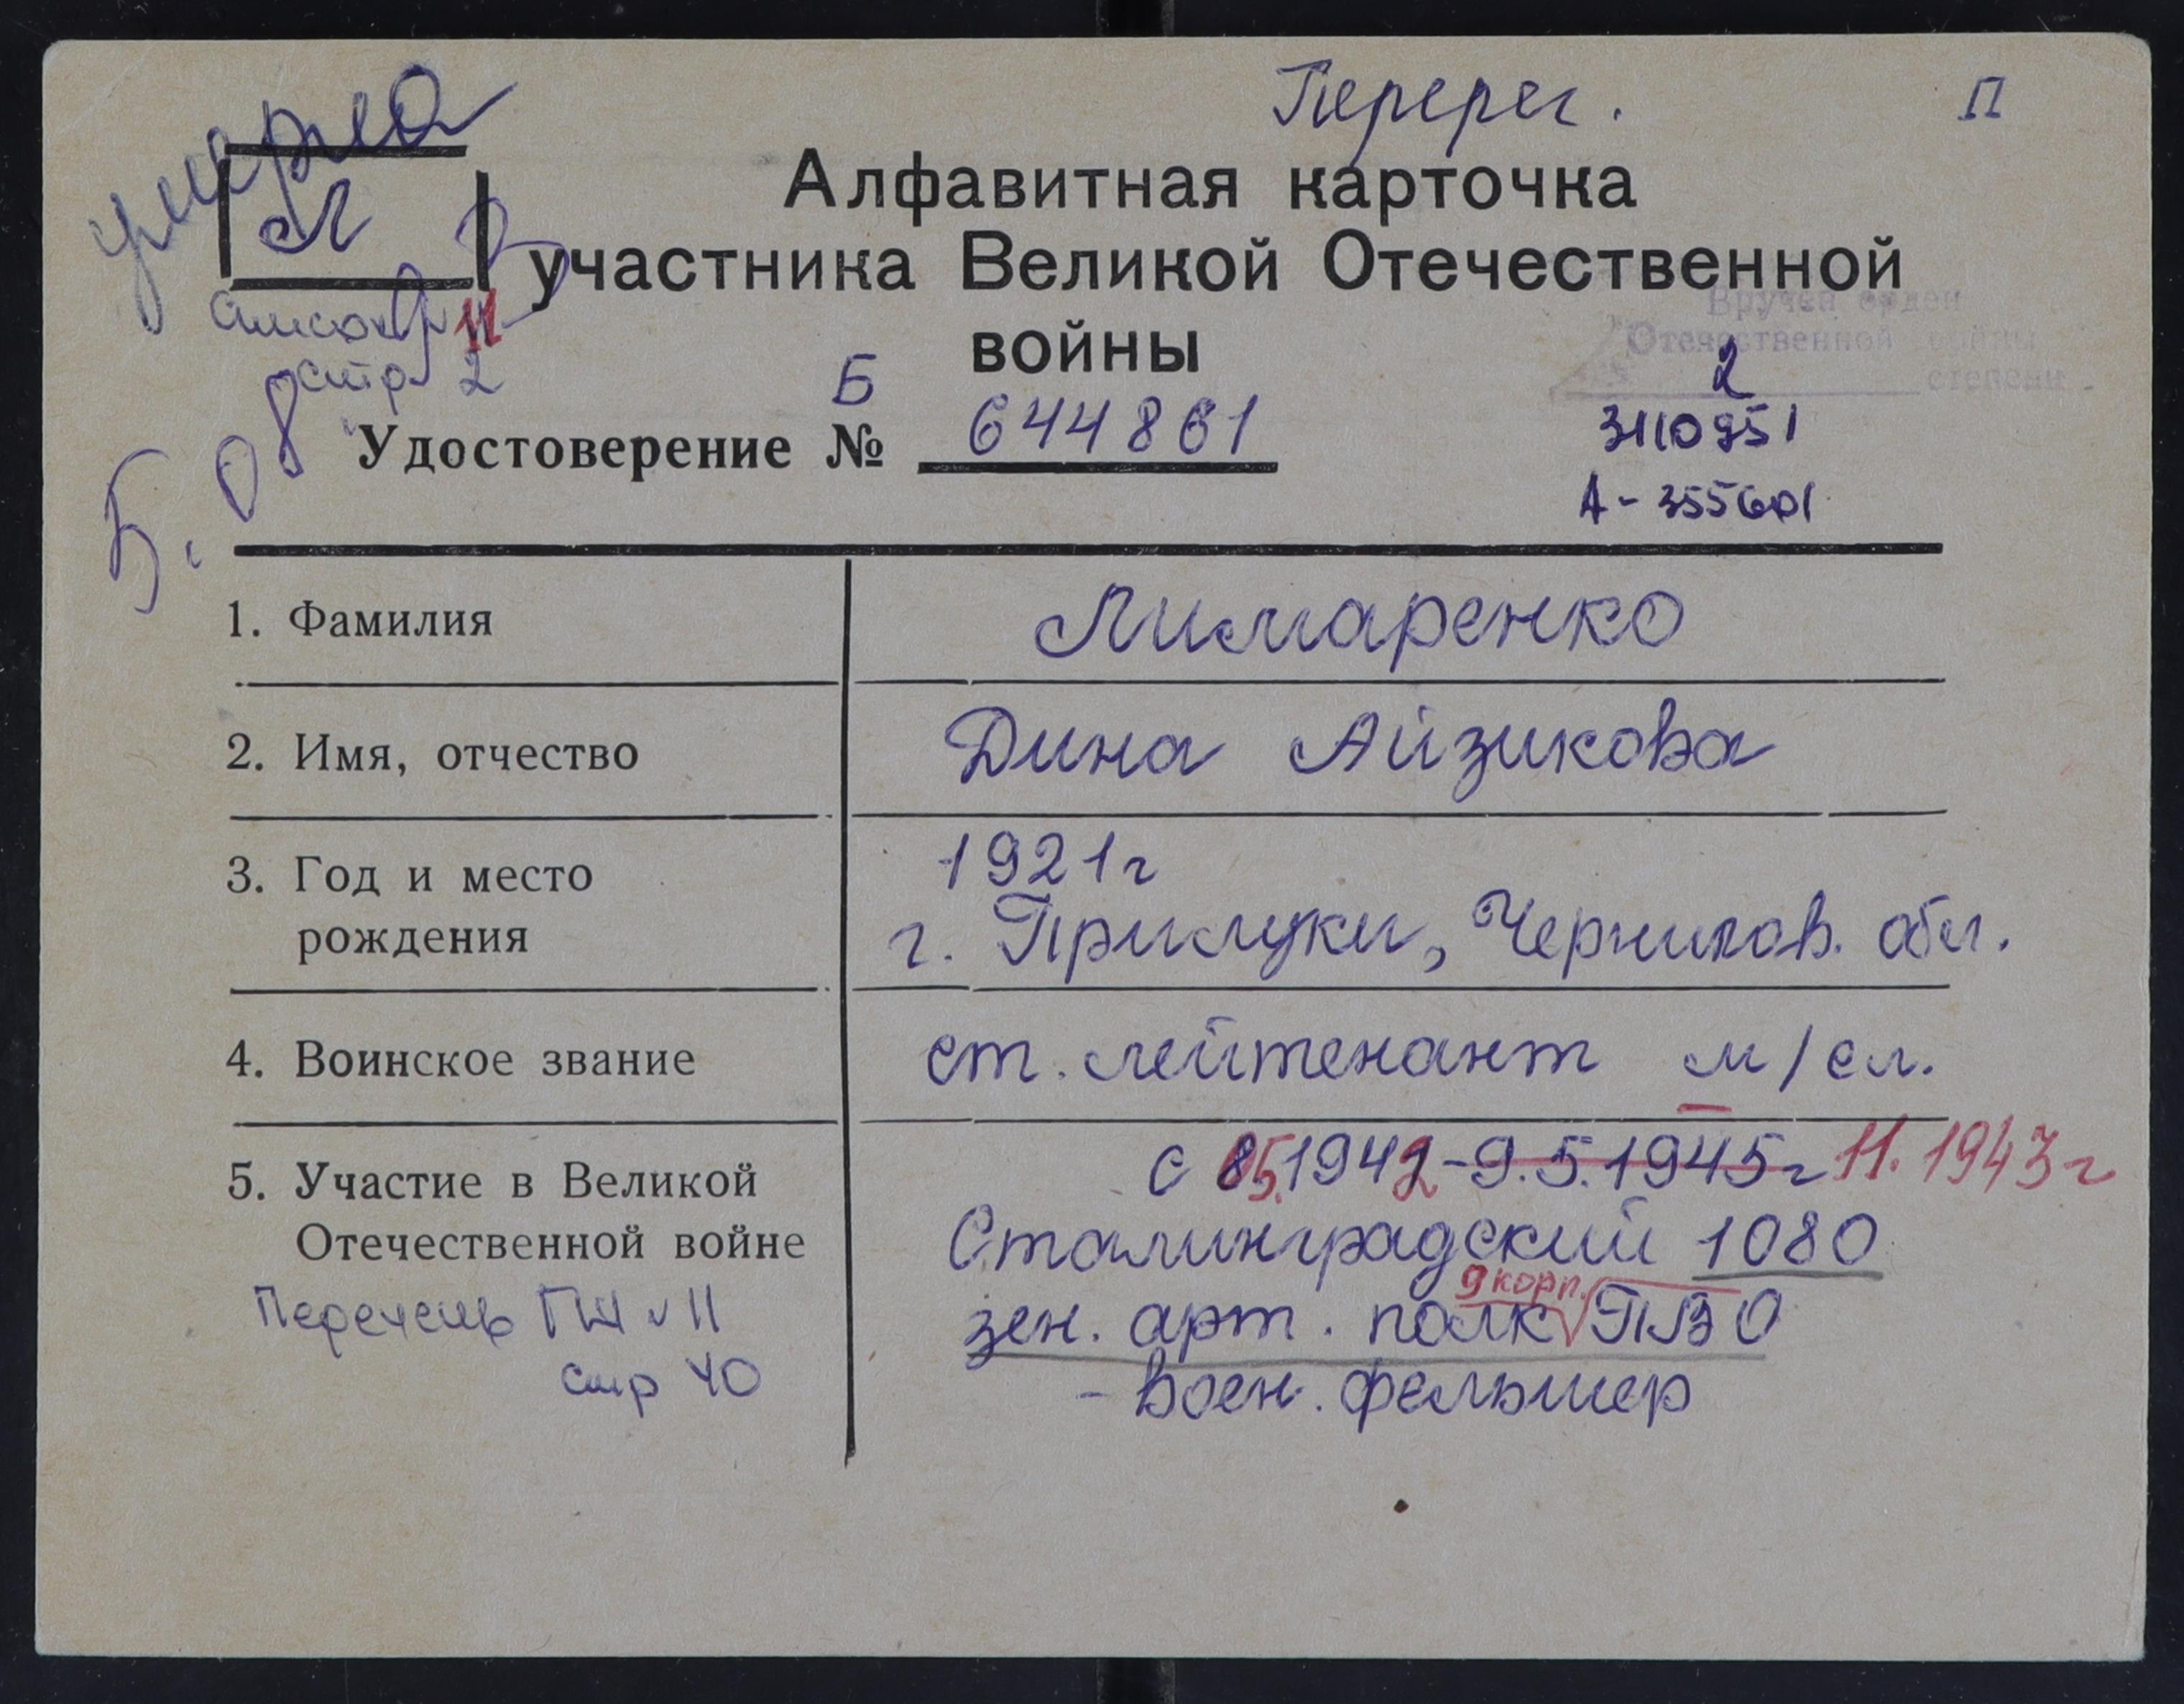 умерла
Перерег.
П
Л
Алфавитная карточка
участника Великой Отечественной
войны
список 11
стр 2
Вручен орден
Отечественной войны
2 степени
Б
Удостоверение № 644861
3110951
А - 355601
Б. 08
1. Фамилия
Лимаренко
2. Имя, отчество
Дина Айзикова
3. Год и место
рождения
1921г
г. Прилуки, Чернигов. обл.
4. Воинское звание
ст. лейтенант м/сл.
5. Участие в Великой
Отечественной войне
с 5.1942-9.5.1945г 11.1943г
Сталинградский 1080
9 корп.
зен. арт. полк ПВО
- воен. фельшер
Перечень ГШ v 11
стр 40